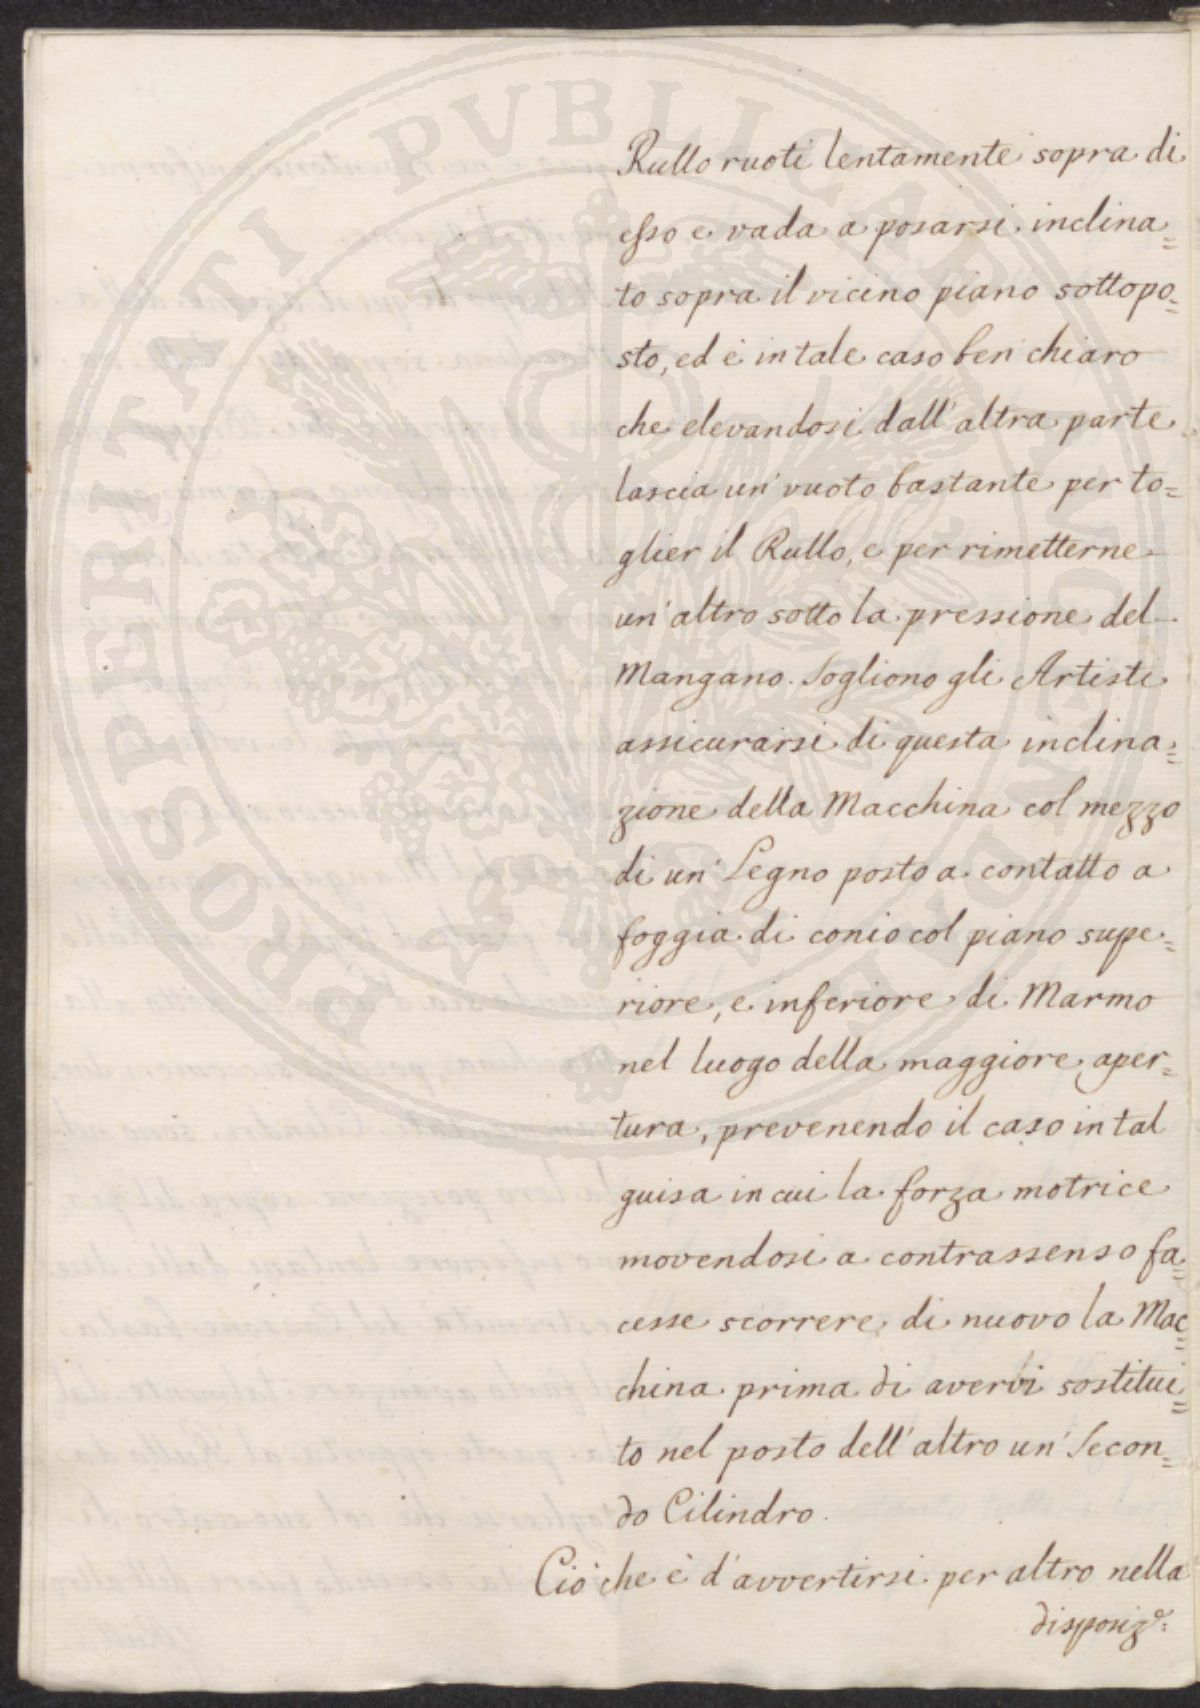 Rullo ruoti lentamente sopra di
esso e vada a posarsi inclina=
to sopra il vicino piano sottopo=
sto, ed è in tale caso ben chiaro
che elevandosi dall'altra parte
lascia un' vuoto bastante per to=
glier il Rullo, e per rimetterne
un' altro sotto la pressione del
Mangano. Sogliono gli Artisti
assicurarsi di questa inclina=
zione della Macchina col mezzo
di un' Legno posto a contatto a
foggia di conio col piano supe=
riore, e inferiore di Marmo
nel luogo della maggiore aper=
tura, prevenendo il caso in tal
guisa in cui la forza motrice
movendosi a contrassenso fa=
cesse scorrere di nuovo la Mac=
china prima di avervi sostitui=
to nel posto dell'altro un' Secon=
do Cilindro.
Ciò che è d'avvertirsi per altro nella
disposiz.e
PROSPERITATI PVBLICAE